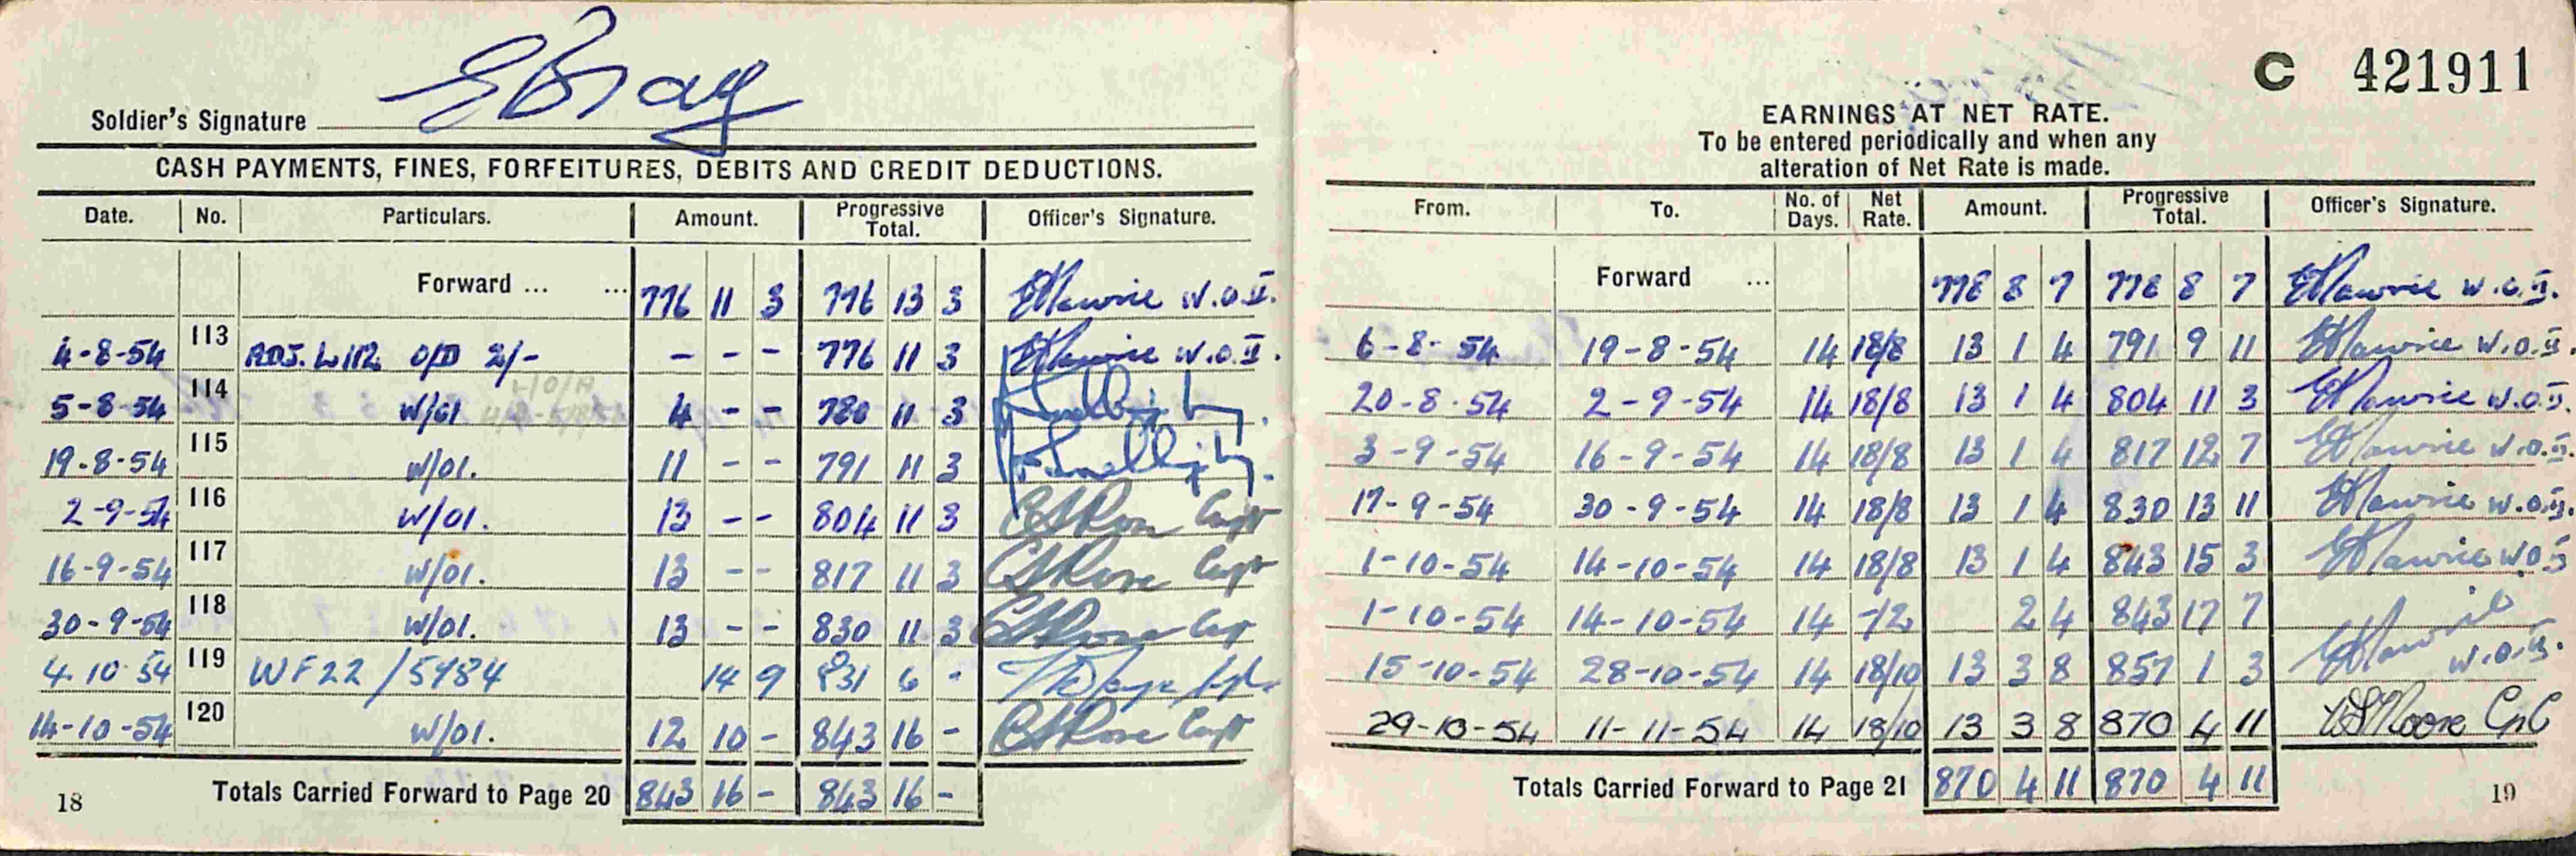 Soldier's Signature EBray
CASH PAYMENTS, FINES, FORFEITURES, DEBITS AND CREDIT DEDUCTIONS.
Date. No. Particulars. Amount. Progressive Total. Officer's Signature.
Forward ... ... 776 11 3 776 13 3 W.O.II.
4-8-54 113 ADJ. L/112 O/D 2/- - - - 776 11 3 W.O.II.
5-8-54 114 W/01 4 - - 780 11 3
19-8-54 115 W/01. 11 - - 791 11 3
2-9-54 116 W/01. 13 - - 804 11 3 Capt
16-9-54 117 W/01. 13 - - 817 11 3 Capt
30-9-54 118 W/01. 13 - - 830 11 3 Capt
4.10.54 119 WF22/5984 14 9 831 6 -
14-10-54 120 W/01. 12 10 - 843 16 - Capt
Totals Carried Forward to Page 20 843 16 - 843 16 -
18
C 421911
EARNINGS AT NET RATE.
To be entered periodically and when any
alteration of Net Rate is made.
From. To. No. of Days. Net Rate. Amount. Progressive Total. Officer's Signature.
Forward ... 778 8 7 778 8 7 W.O.II.
6-8-54 19-8-54 14 18/8 13 1 4 791 9 11 W.O.II.
20-8-54 2-9-54 14 18/8 13 1 4 804 11 3 W.O.II.
3-9-54 16-9-54 14 18/8 13 1 4 817 12 7 W.O.II.
17-9-54 30-9-54 14 18/8 13 1 4 830 13 11 W.O.II.
1-10-54 14-10-54 14 18/8 13 1 4 843 15 3 W.O.II
1-10-54 14-10-54 14 -/2 2 4 843 17 7
15-10-54 28-10-54 14 18/10 13 3 8 857 1 3 W.O.II.
29-10-54 11-11-54 14 18/10 13 3 8 870 4 11 Moore
Totals Carried Forward to Page 21 870 4 11 870 4 11
19